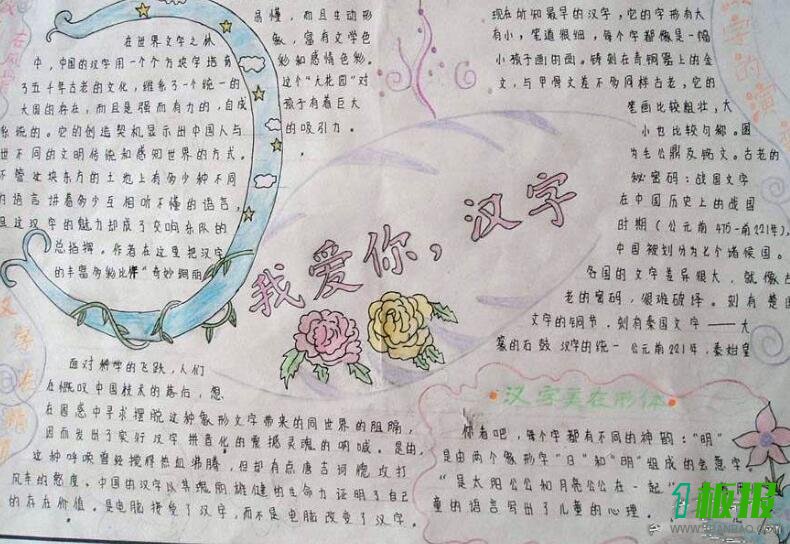 在世界文字之林
中,中国的汉字用一个个方块字培育
了五千年古老的文化,维系了一个统一的
大国的存在,而且是强而有力的,自成
系统的。它的创造契机显示出中国人与
世不同的文明传统和感知世界的方式。
不管这块东方的土地上有多少种不同
的语言,拼着多少互相听不懂的语言,
但这汉字的魅力却成了交响乐队的
总指挥。作者在这里把汉字
的丰富多彩比作"奇妙绚丽
易懂,而且生动形
象,富有文学色
彩和感情色彩。
这个"大花园"对
孩子有着巨大
的吸引力。
现在所知最早的汉字,它的字形有大
有小,笔道很细,每个字都像是一幅
小孩子画的画。铸刻在青铜器上的金
文,与甲骨文差不多同样古老,它的
笔画比较粗壮,大
小也比较匀称。图
为毛公鼎及铭文。古老的
秘密码:战国文字
在中国历史上的战国
时期(公元前475-前221年),
中国被划分为七个诸侯国。
各国的文字差异很大,就像古
老的密码,很难破译。刻有楚国
文字的铜节,刻有秦国文字——大
篆的石鼓 汉字的统一 公元前221年,秦始皇
我爱你,汉字
面对科学的飞跃,人们
在慨叹中国技术的落后,想
在困惑中寻求摆脱这种象形文字带来的同世界的阻隔,
因而发出了实行汉字拼音化的震撼灵魂的呐喊。是的,
这种呼唤曾经搅得热血沸腾,但却有点唐吉诃德攻打
风车的憨度。中国的汉字以其瑰丽雄健的生命力证明了自己
的存在价值。是电脑接受了汉字,而不是电脑改变了汉字。
汉字美在形体
你看吧,每个字都有不同的神韵:"明"
是由两个象形字"日"和"明"组成的会意字
"是太阳公公和月亮公公在一起"
童的语言写出了儿童的心理。
板报